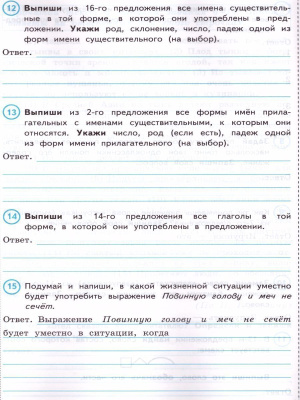 12 Выпиши из 16-го предложения все имена существитель-
ные в той форме, в которой они употреблены в пред-
ложении. Укажи род, склонение, число, падеж одной из
форм имени существительного (на выбор).
Ответ.
13 Выпиши из 2-го предложения все формы имён прила-
гательных с именами существительными, к которым они
относятся. Укажи число, род (если есть), падеж одной
из форм имени прилагательного (на выбор).
Ответ.
14 Выпиши из 14-го предложения все глаголы в той
форме, в которой они употреблены в предложении.
Ответ.
15 Подумай и напиши, в какой жизненной ситуации уместно
будет употребить выражение Повинную голову и меч не
сечёт.
Ответ. Выражение Повинную голову и меч не сечёт
будет уместно в ситуации, когда